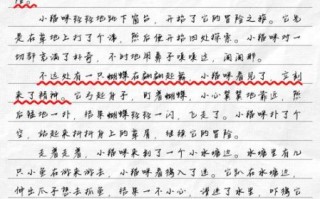 小猫咪轻轻地跳下窗台，开始了它的冒险之旅。它先
是在草地上打了个滚，然后便开始四处探索。小猫咪对一
切都充满了好奇，不时地用鼻子嗅嗅这，闻闻那。
不远处有一只蝴蝶在翩翩起舞，小猫咪看见了，立刻
来了精神。它弓起身子，盯着蝴蝶，小心翼翼地靠近，然
后猛地一扑，结果蝴蝶轻轻一闪，飞走了。小猫咪扑了个
空，站起来抖抖身上的草屑，继续它的冒险。
走着走着，小猫咪来到了一个小水塘边。水塘里有几
只小鱼在游来游去，小猫咪看得入了迷。它趴在水塘边，
伸出爪子想去抓鱼，结果一不小心，滑进了水里，吓得它